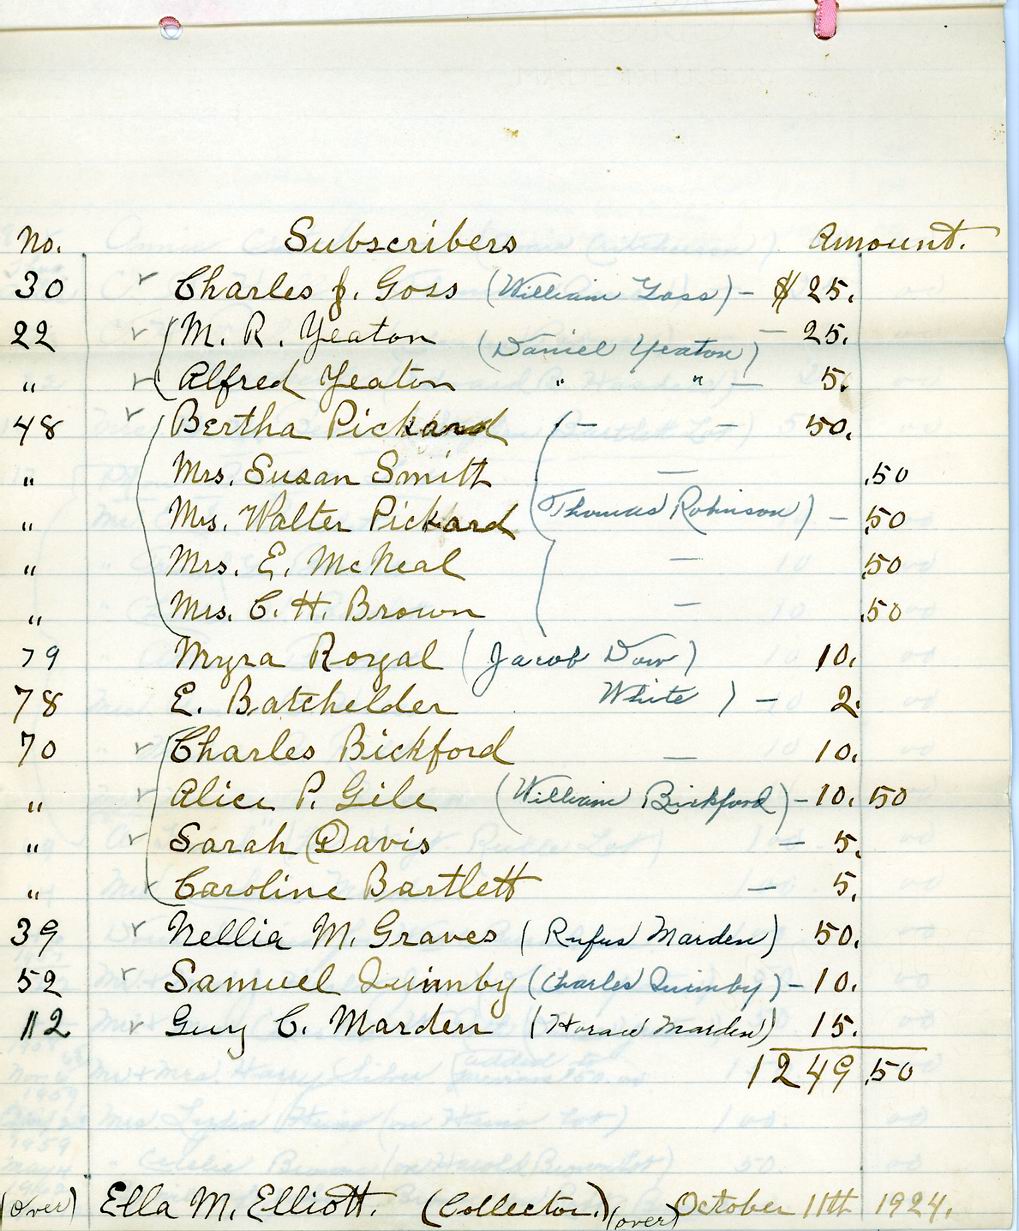 No. Subscribers Amount.
30 Charles J. Goss (William Goss) - $ 25.
22 M. R. Yeaton (Daniel Yeaton) - 25.
" Alfred Yeaton " " - 5.
48 Bertha Pickard - - 50.
" Mrs. Susan Smith - .50
" Mrs. Walter Pickard (Thomas Robinson) - .50
" Mrs. E. McNeal - .50
" Mrs. C. H. Brown - .50
79 Myra Royal (Jacob Dow) 10.
78 E. Batchelder White) - 2.
70 Charles Bickford - 10.
" Alice P. Gile (William Bickford) - 10. 50
" Sarah Davis - 5.
" Caroline Bartlett - 5.
39 Nellia M. Graves (Rufus Marden) 50.
52 Samuel Quimby (Charles Quimby) - 10.
112 Guy C. Marden (Horace Marden) 15.
1249.50
(over) Ella M. Elliott. (Collector.) (over) October 11th 1924.